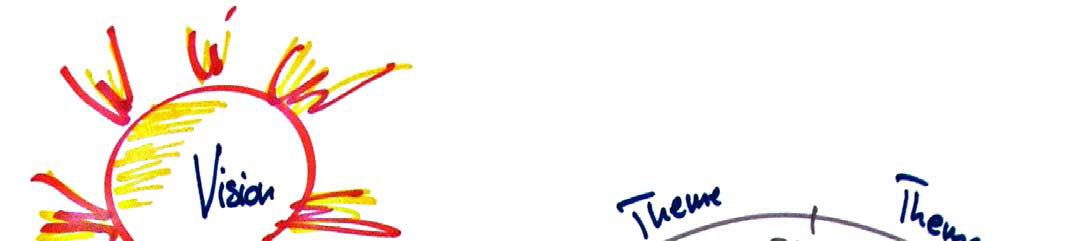 Vision
Theme
Theme